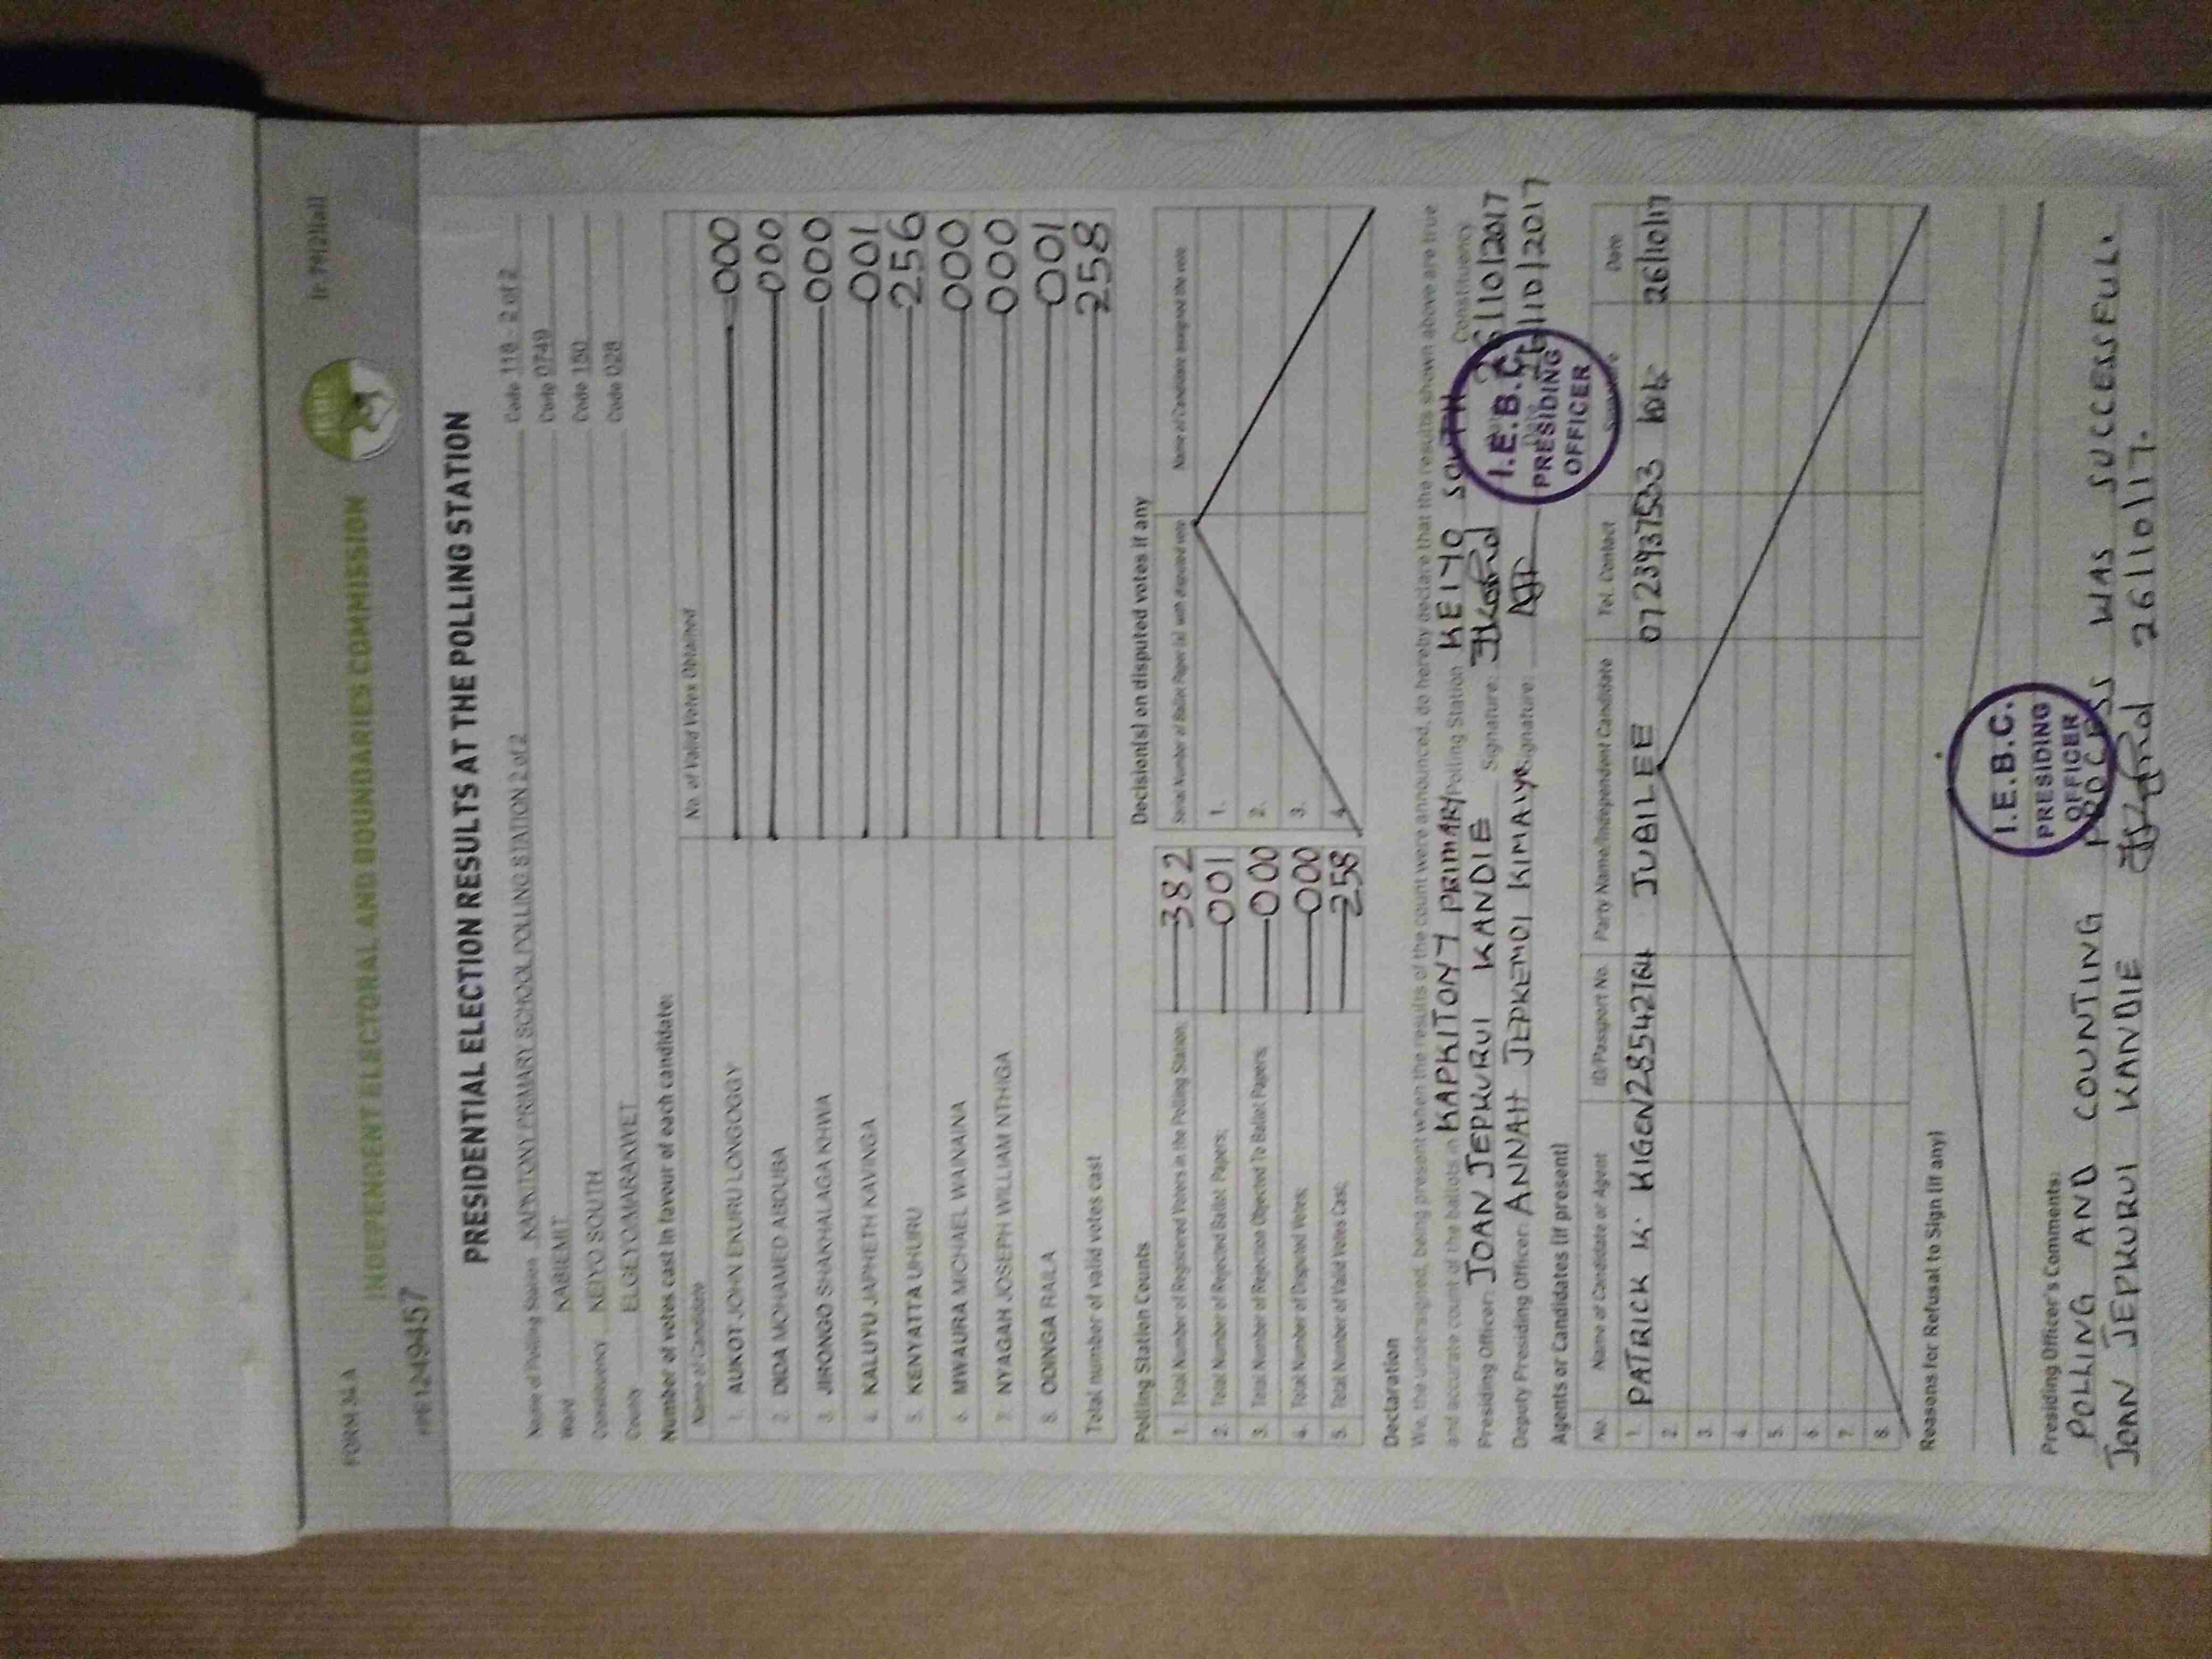 FORM 34 A
INDEPENDENT ELECTORAL AND BOUNDARIES COMMISSION
IEBC
1249457
PRESIDENTIAL ELECTION RESULTS AT THE POLLING STATION
Name of Polling Station KAPKITONY PRIMARY SCHOOL POLLING STATION 2 of 2 Code 118 2 of 2
Ward KABIEMIT Code 0749
Constituency KEIYO SOUTH Code 150
County ELGEYO/MARAKWET Code 028
Number of votes cast in favour of each candidate:
Name of Candidate No. of Valid Votes Obtained
1. AUKOT JOHN EKURU LONGOGGY 000
2. DIDA MOHAMED ABDUBA 000
3. JIRONGO SHAKHALAGA KHWA 000
4. KALUYU JAPHETH KAVINGA 001
5. KENYATTA UHURU 256
6. MWAURA MICHAEL WAINAINA 000
7. NYAGAH JOSEPH WILLIAM NTHIGA 000
8. ODINGA RAILA 001
Total number of valid votes cast 258
Polling Station Counts
1. Total Number of Registered Voters in the Polling Station; 382
2. Total Number of Rejected Ballot Papers; 001
3. Total Number of Rejection Objected To Ballot Papers; 000
4. Total Number of Disputed Votes; 000
5. Total Number of Valid Votes Cast; 258
Decision(s) on disputed votes if any
Serial Number of Ballot Paper (s) with disputed vote Name of Candidate assigned the vote
1.
2.
3.
4.
Declaration
We, the undersigned, being present when the results of the count were announced, do hereby declare that the results shown above are true
and accurate count of the ballots in KAPKITONY PRIMARY Polling Station KEIYO SOUTH Constituency
Presiding Officer: JOAN JEPKURUI KANDIE Signature: 26/10/2017
Deputy Presiding Officer: ANNAH JEPKEMOI KIMAIYO Signature: 26/10/2017
I.E.B.C.
PRESIDING
OFFICER
Agents or Candidates (if present)
No. Name of Candidate or Agent ID/Passport No. Party Name/Independent Candidate Tel. Contact Signature Date
1. PATRICK K. KIGEN 28542764 JUBILEE 0723937533 26/10/17
2.
3.
4.
5.
6.
7.
8.
Reasons for Refusal to Sign (if any)
I.E.B.C.
PRESIDING
OFFICER
Presiding Officer's Comments:
POLLING AND COUNTING PROCESS WAS SUCCESSFUL.
JOAN JEPKURUI KANDIE 26/10/17.